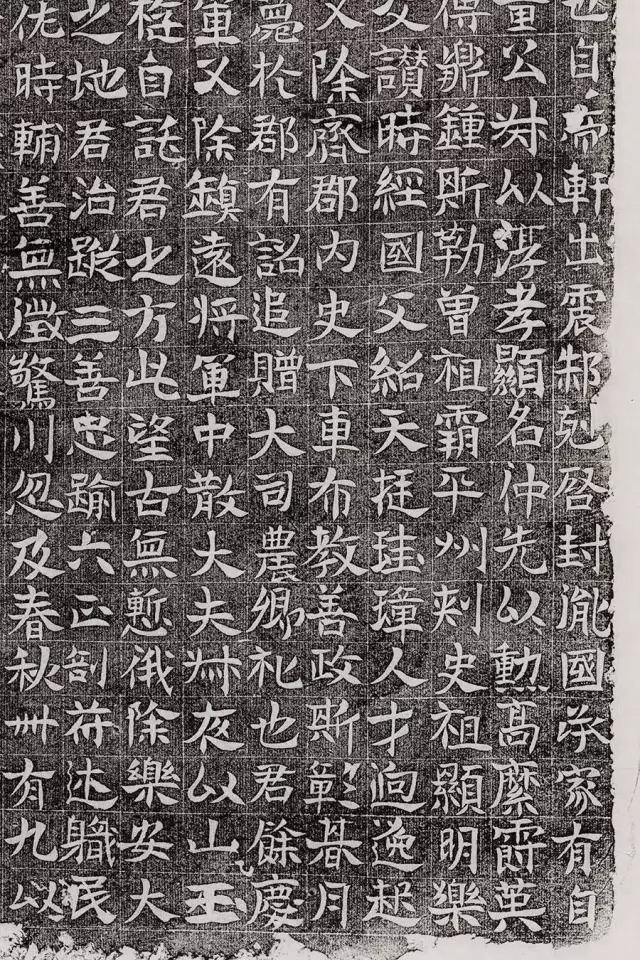 自帝軒出震剋啓封胤國承家有自
公叔以淳孝顯名仲先以勳高縻爵英
鼎鍾斯勒曾祖霸平州刾史祖顯明樂
讚時經國父紹天挺珪璋人才逈逸起
又除齊郡内史下車布教善政斯彰朞月
薨於郡有詔追贈大司農卿礼也君餘慶
軍又除鎮遠將軍中散大夫叔夜以山王
自託君之方此望古無慙俄除樂安大
之地君治蹤三善忠踰六正剖苻述職民
佐時輔善無徵驚川忽及春秋卌有九以